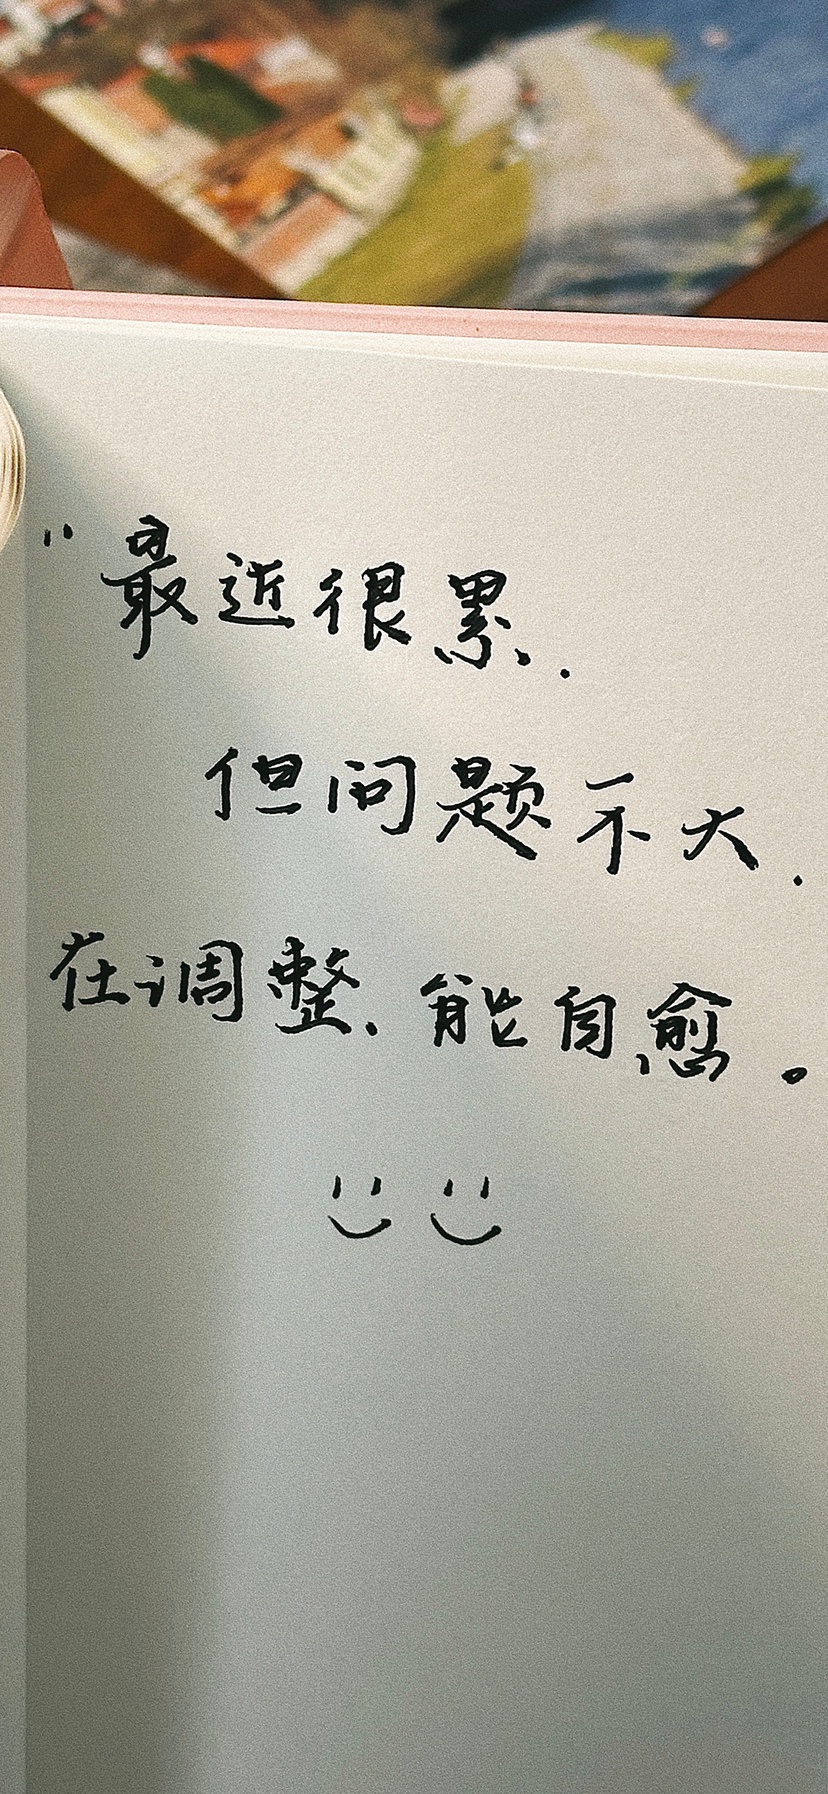 “最近很累.
但问题不大.
在调整、能自愈。